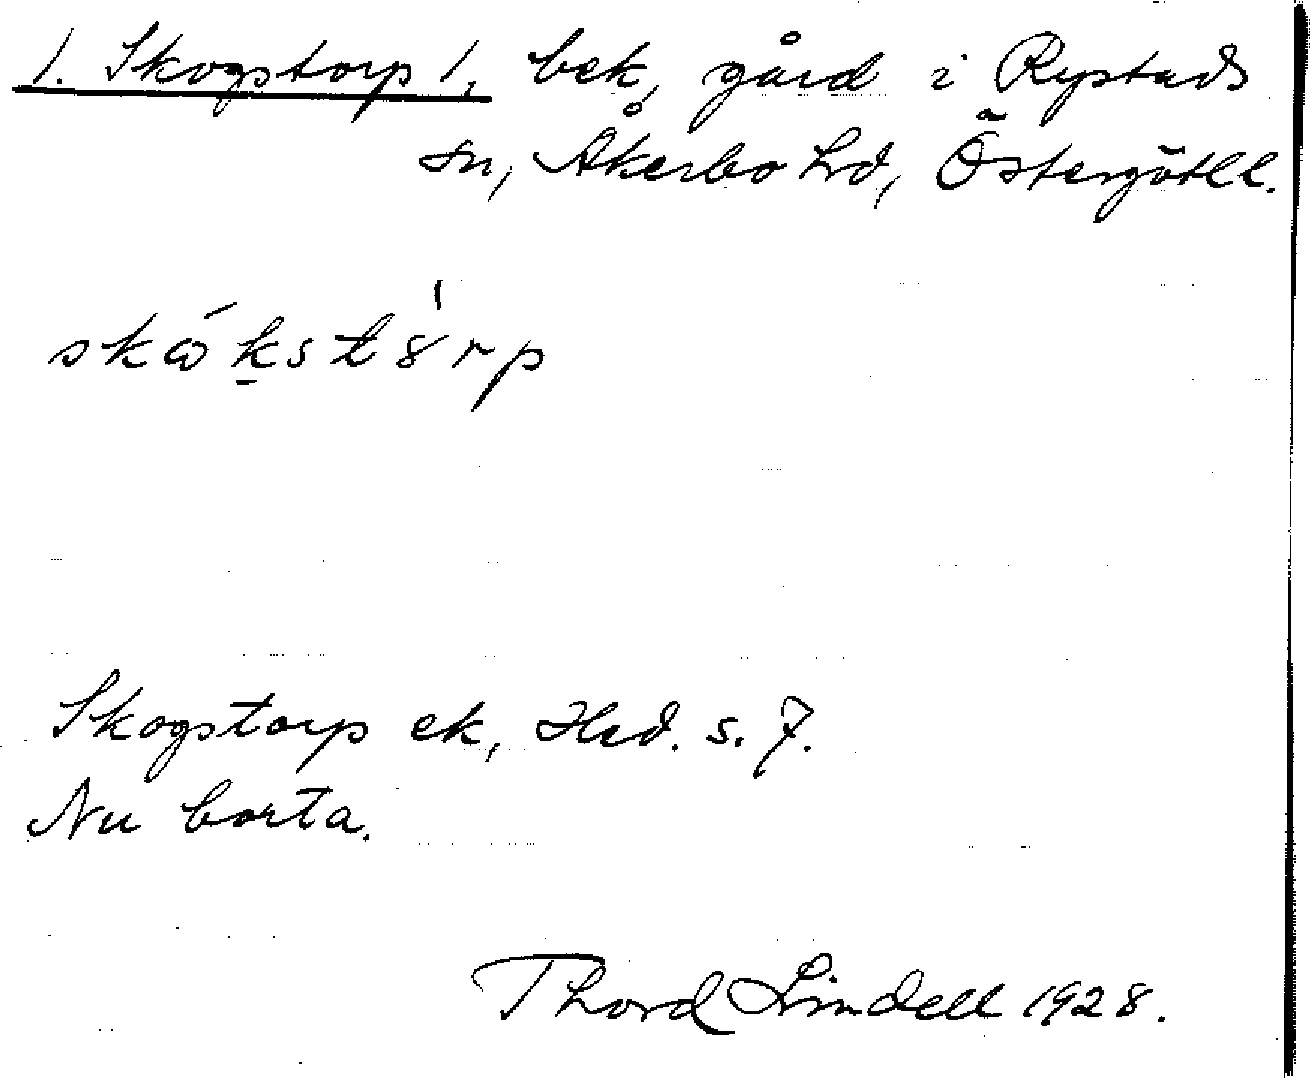 1. Skogstorp 1, bek, gård i Rystads
sn, Åkerbo hd, Östergötl.
skɷ́kstȣ́rp
Skogstorp ek, Hrd. s. 7.
Nu borta.
Thord Lindell 1928.